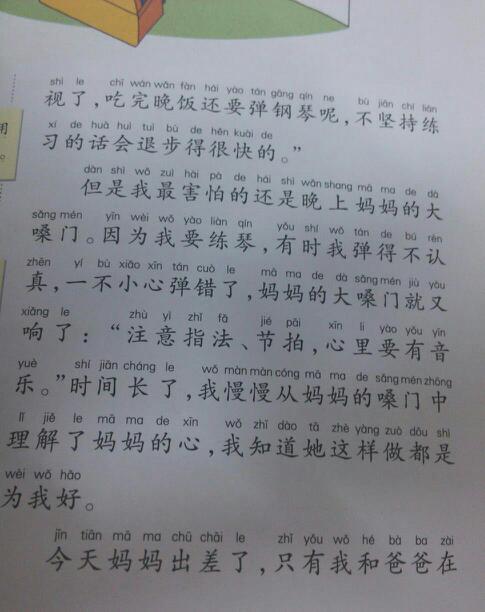 shì le chī wán wǎn fàn hái yào tán gāng qín ne bù jiān chí liàn
视了，吃完晚饭还要弹钢琴呢，不坚持练
xí de huà huì tuì bù de hěn kuài de
习的话会退步得很快的。”
dàn shì wǒ zuì hài pà de hái shì wǎn shang mā ma de dà
但是我最害怕的还是晚上妈妈的大
sǎng mén yīn wèi wǒ yào liàn qín yǒu shí wǒ tán de bú rèn
嗓门。因为我要练琴，有时我弹得不认
zhēn yí bù xiǎo xīn tán cuò le mā ma de dà sǎng mén jiù yòu
真，一不小心弹错了，妈妈的大嗓门就又
xiǎng le zhù yì zhǐ fǎ jié pāi xīn li yào yǒu yīn
响了：“注意指法、节拍，心里要有音
yuè shí jiān cháng le wǒ màn màn cóng mā ma de sǎng mén zhōng
乐。”时间长了，我慢慢从妈妈的嗓门中
lǐ jiě le mā ma de xīn wǒ zhī dào tā zhè yàng zuò dōu shì
理解了妈妈的心，我知道她这样做都是
wèi wǒ hǎo
为我好。
jīn tiān mā ma chū chāi le zhǐ yǒu wǒ hé bà ba zài
今天妈妈出差了，只有我和爸爸在